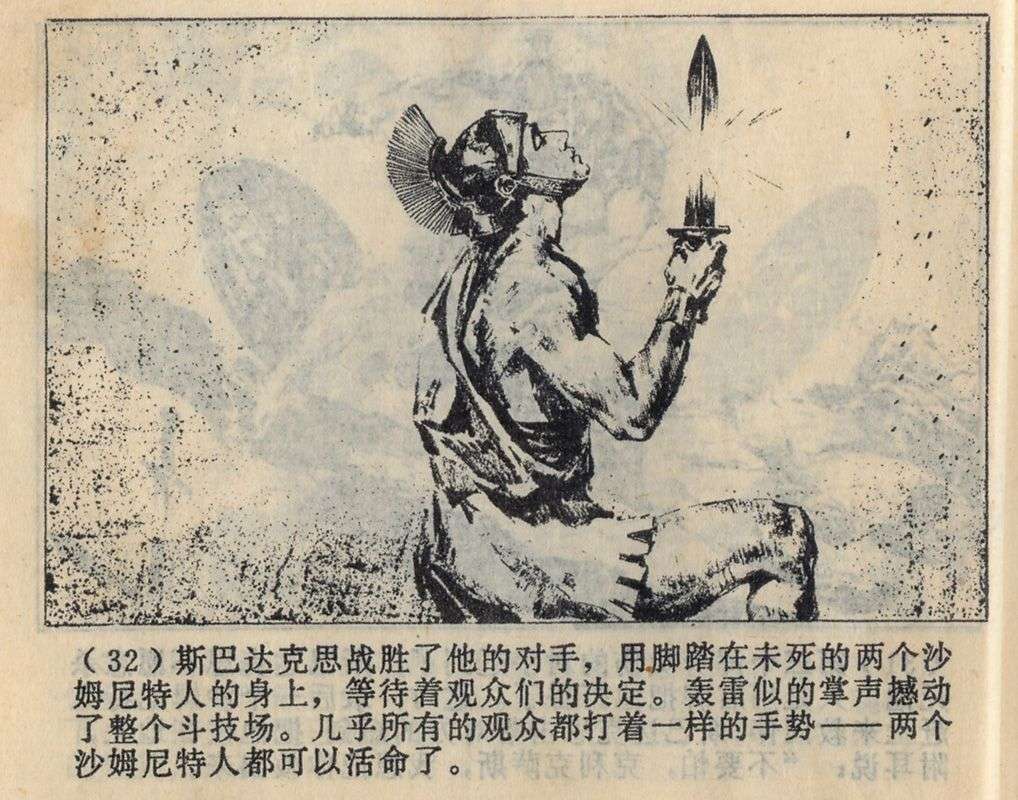 （32）斯巴达克思战胜了他的对手，用脚踏在未死的两个沙
姆尼特人的身上，等待着观众们的决定。轰雷似的掌声撼动
了整个斗技场。几乎所有的观众都打着一样的手势——两个
沙姆尼特人都可以活命了。